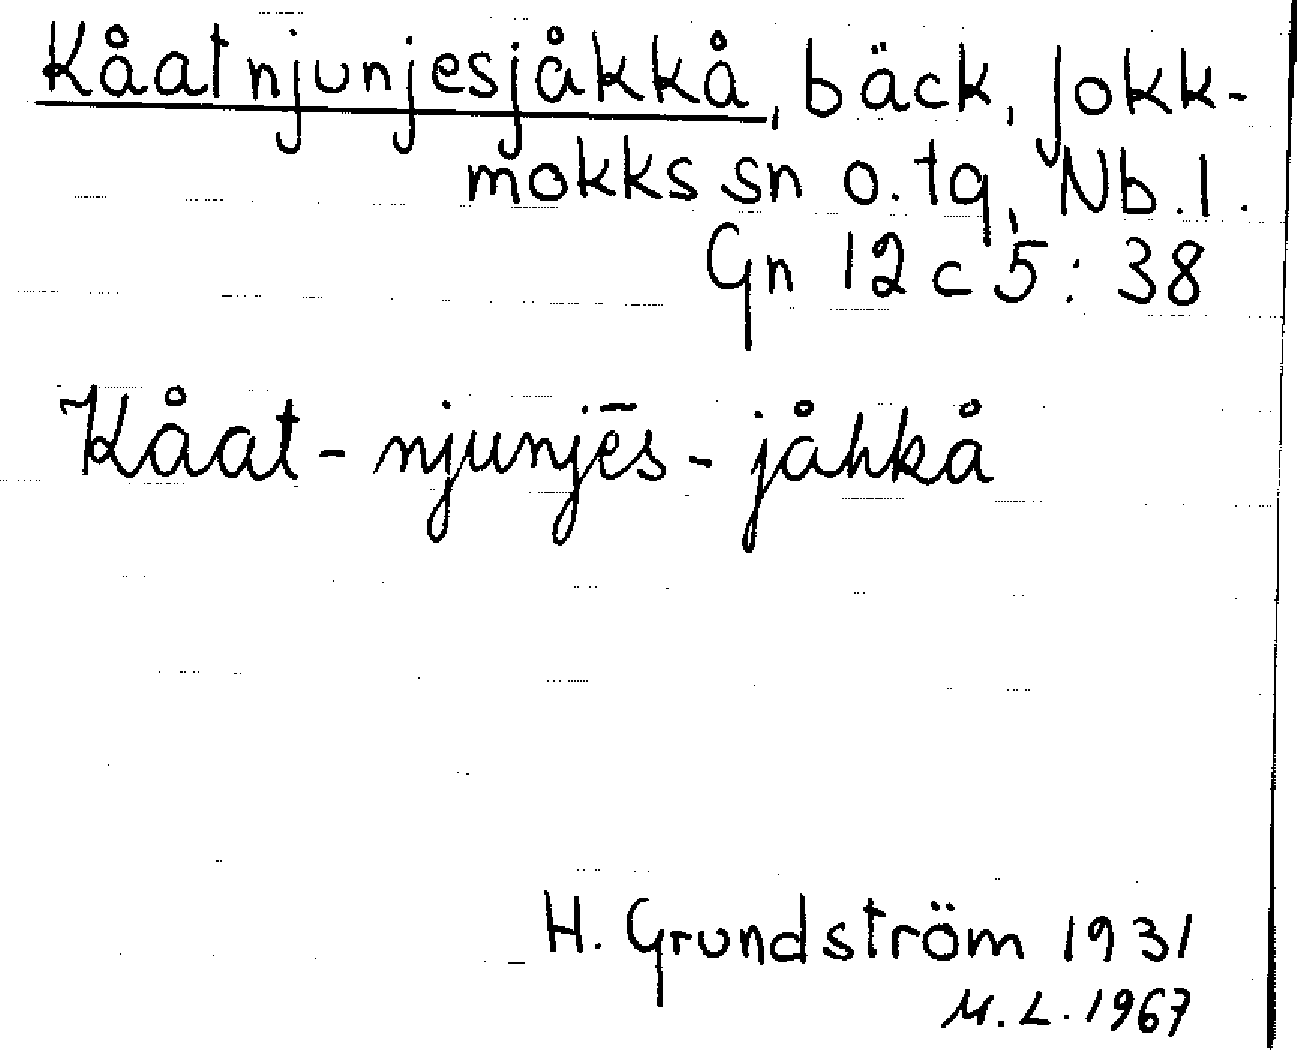 Kåatnjunjesjåkkå, bäck, Jokk-
mokks sn o. tg, Nb. l.
Gn 12 c 5 : 38
Kåat - njunjēs - jåhkå
H. Grundström 1931
M. L. 1967